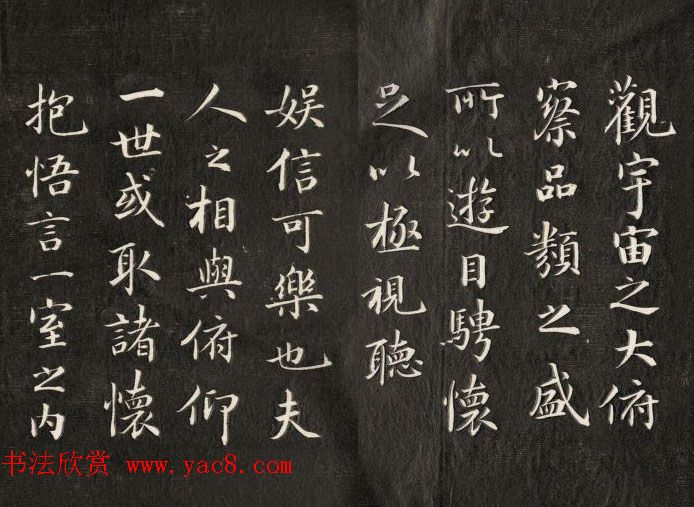 觀宇宙之大俯
察品類之盛
所以遊目騁懷
足以極視聽
娱信可樂也夫
人之相與俯仰
一世或取諸懷
抱悟言一室之内
书法欣赏 www.yac8.com